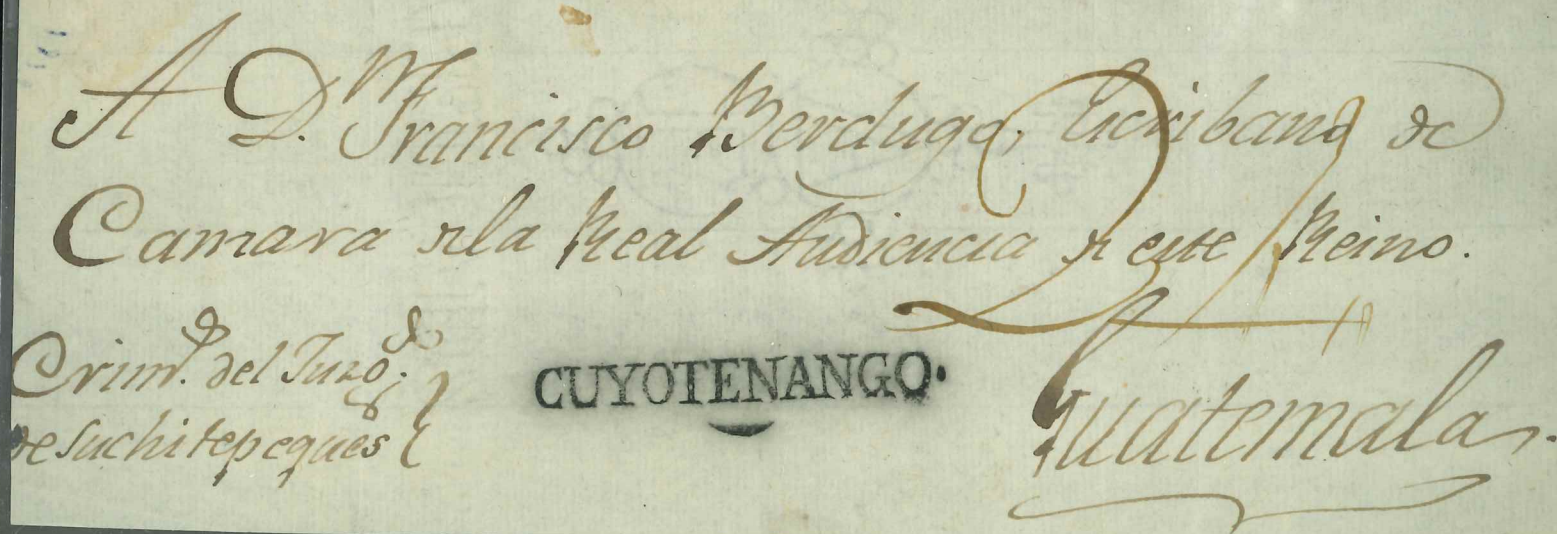 A D.n Francisco Berdugo, Escribano de
Camara de la Real Audiencia de este Reino.
24
Crim.l del Juzg.do
de Suchitepeques
CUYOTENANGO.
Guatemala.